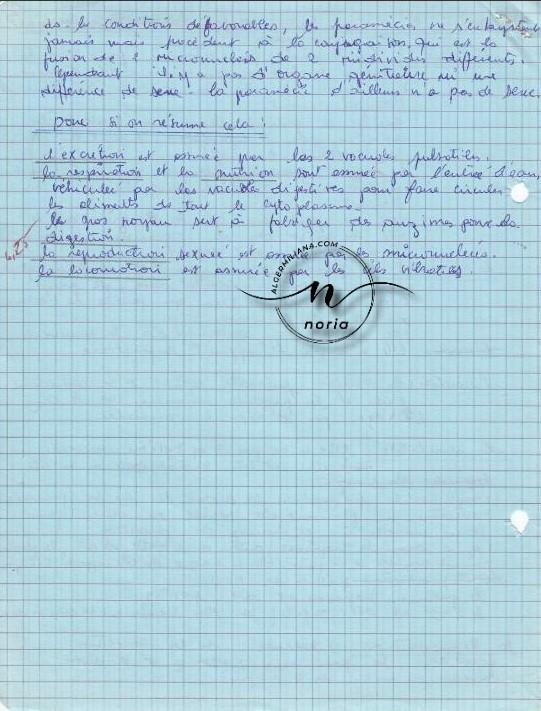 ds les conditions défavorables, les paramécies ne s'enkystent
jamais mais procèdent à la conjugaison, qui est la
fusion de 2 micronucleis de 2 individus différents.
Cependant il n'y a pas d'organe génitateur ni une
différence de sexe. la paramécie d'ailleurs n'a pas de sexe.
Donc si on résume cela :
l'excrétion est assurée par les 2 vacuoles pulsatiles.
la respiration et la nutrition sont assurée par l'entrée d'eau,
véhiculée par les vacuoles digestives pour faire circuler
les aliments ds tout le cytoplasme.
le gros noyau sert à fabriquer des enzimes pour la
digestion.
6,25
la reproduction sexuée est assurée par les micronucleus.
la locomotion est assurée par les cils vibratiles.
ALGERMILIANA.COM
n
noria